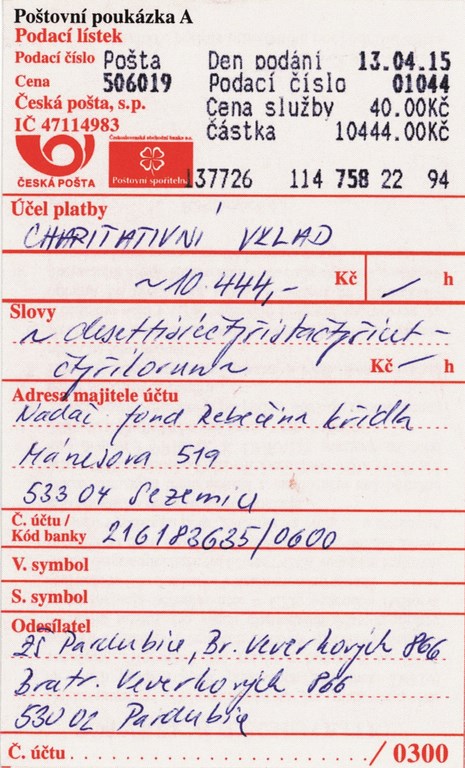 Poštovní poukázka A
Podací lístek
Podací číslo Pošta Den podání 13.04.15
Cena 506019 Podací číslo 01044
Česká pošta, s.p. Cena služby 40.00Kč
IČ 47114983 Částka 10444.00Kč
Československá obchodní banka a.s.
ČESKÁ POŠTA Poštovní spořiteln
137726 114 758 22 94
Účel platby
CHARITATIVNÍ VKLAD
~10.444,- Kč / h
Slovy
~ desettisícčtyřistačtyřicet-
čtyřikorun ~ Kč — h
Adresa majitele účtu
Nadač. fond Rebečina křídla
Mánesova 519
533 04 Sezemice
Č. účtu /
Kód banky 216183635/0600
V. symbol
S. symbol
Odesílatel
ZŠ Pardubice, Br. Veverkových 866
Bratr. Veverkových 866
530 02 Pardubice
Č. účtu . . . . . . . . . . . . . . . . / 0300